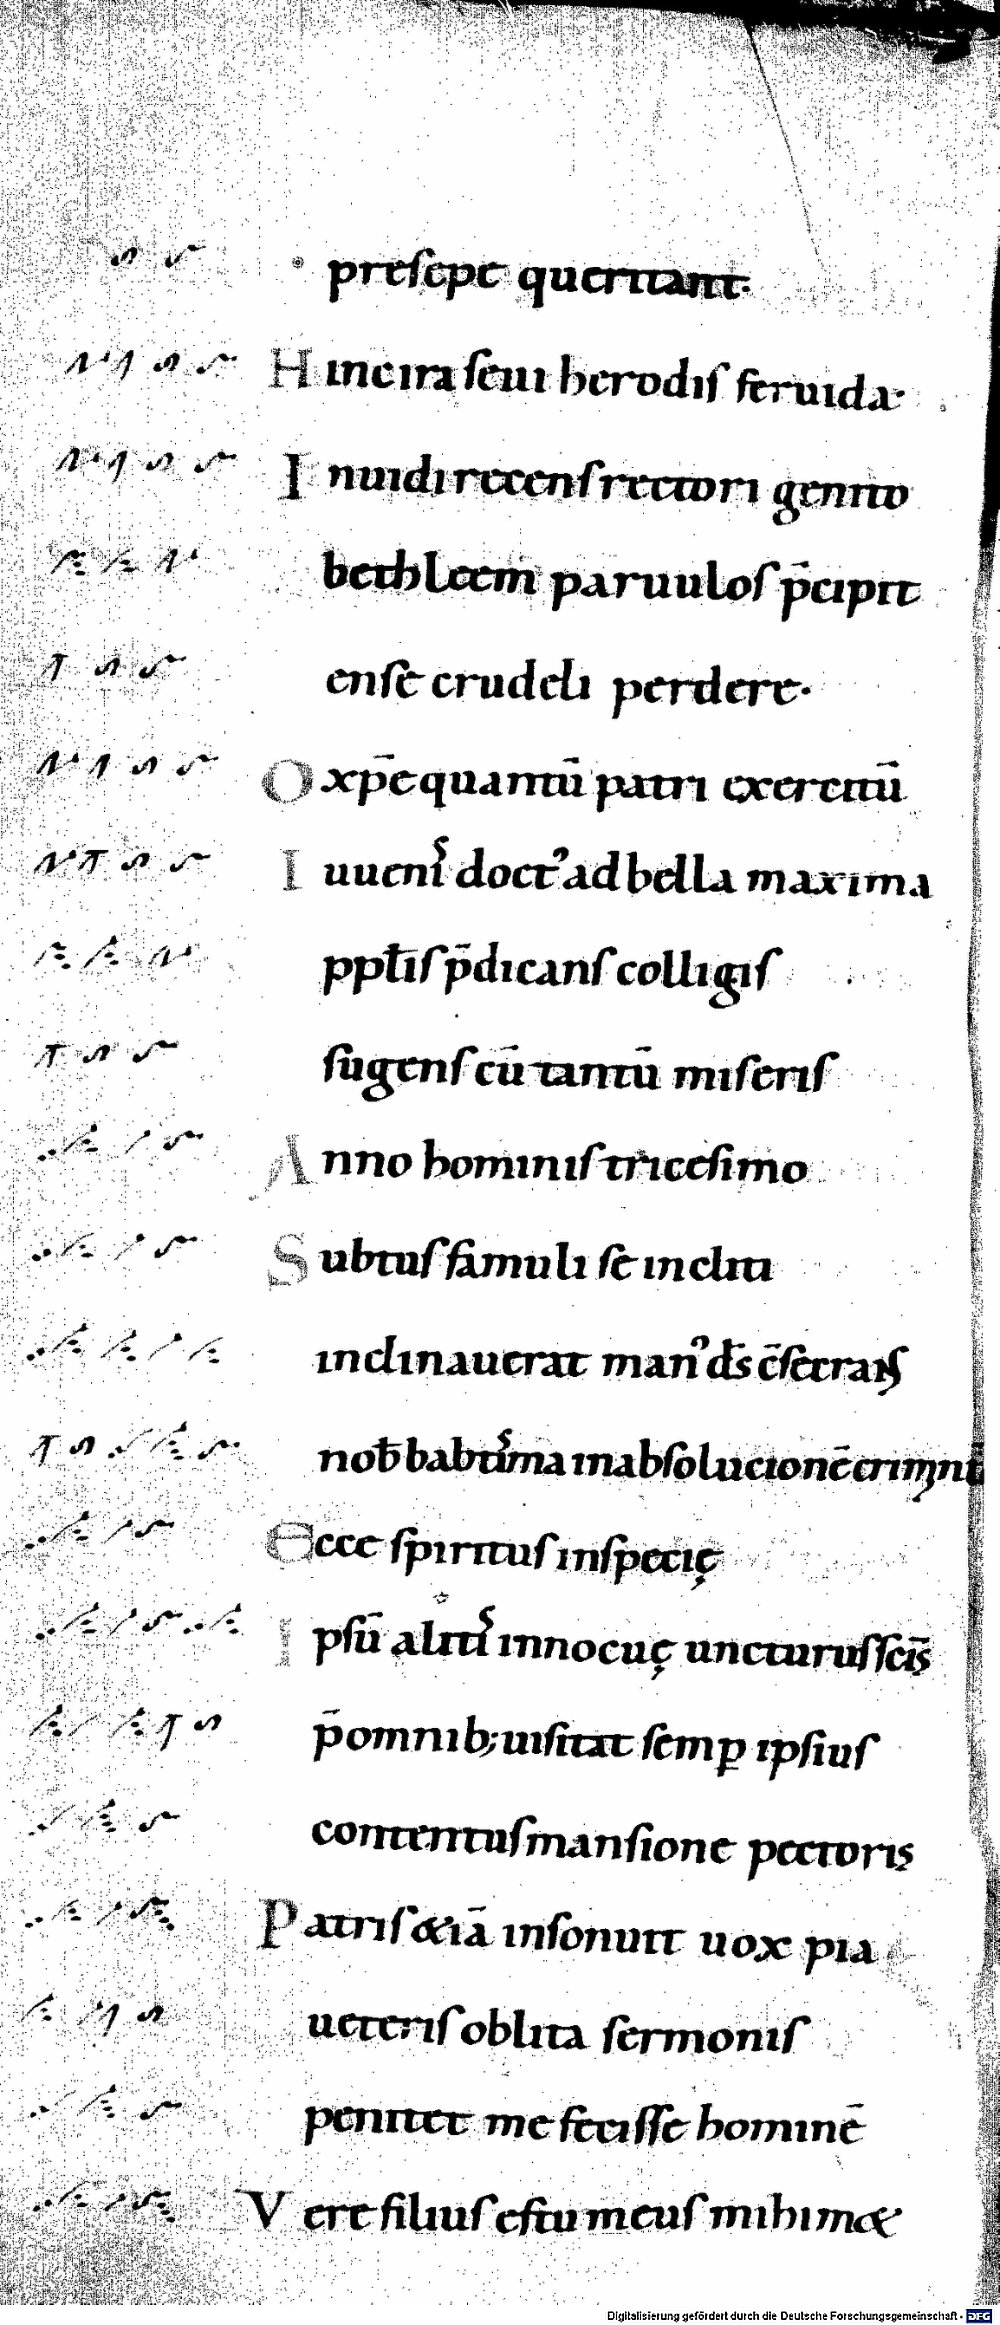 presepe queritant·
Hinc ira seui herodis feruida·
Inuidi recens rectori genito
bethleem paruulos p̄cipit
ense crudeli perdere·
O xp̄e quantū patri exercitū
Iuueniˢ doctꝰ ad bella maxima
ppłis p̄dicans colligis
sugens cū tantū miseris
Anno hominis tricesimo
Subtus famuli se incliti
inclinauerat manꝰ d̄s c̄secrans
nob̄ babtisma in absolucionē criminū
Ecce spiritus in specię
Ipsū alitiˢ innocuę uncturus sc̄is
p̄ omnib; uisitat semꝑ ipsius
contentus mansione pectoris
Patris &iā insonuit uox pia
ueteris oblita sermonis
penitet me fecisse hominē
Vere filius es tu meus mihim&
Digitalisierung gefördert durch die Deutsche Forschungsgemeinschaft - DFG